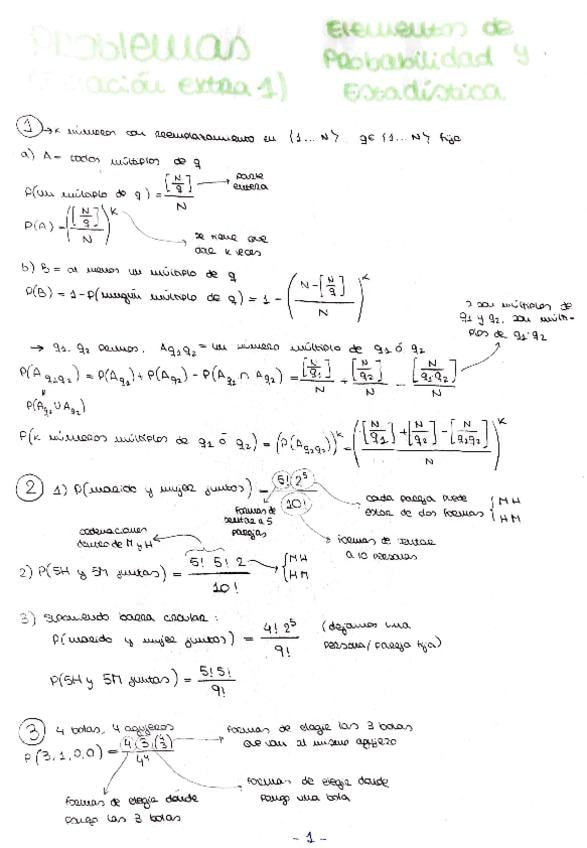 Problemas
(Relación extra 1)
Elementos de
Probabilidad y
Estadística
① → k números con reemplazamiento en {1...N} q∈{1...N} fijo
a) A = todos múltiplos de q
P(un múltiplo de q) = [N/q]/N → parte entera
P(A) = ([N/q]/N)^k → se tiene que dar k veces
b) B = al menos un múltiplo de q
P(B) = 1 - P(ningún múltiplo de q) = 1 - ((N-[N/q])/N)^k
→ q1, q2 primos, A_{q1q2} = un número múltiplo de q1 ó q2
si son múltiplos de
q1 y q2, son múlti-
plos de q1·q2
P(A_{q1q2}) = P(A_{q1}) + P(A_{q2}) - P(A_{q1} ∩ A_{q2}) = [N/q1]/N + [N/q2]/N - [N/q1q2]/N
P(A_{q1} ∪ A_{q2})
P(k números múltiplos de q1 ó q2) = (P(A_{q1q2}))^k = (([N/q1]+[N/q2]-[N/q1q2])/N)^k
② 1) P(marido y mujer juntos) = 5! 2^5/10!
cada pareja puede
estar de dos formas { MH
HM
formas de
sentar a 5
parejas
formas de sentar
a 10 personas
ordenaciones
dentro de M y H
2) P(5H y 5M juntas) = 5! 5! 2/10! → { MH
HM
3) Suponiendo barra circular:
P(marido y mujer juntos) = 4! 2^5/9! (dejamos una
persona/pareja fija)
P(5H y 5M juntas) = 5! 5!/9!
③ 4 bolas, 4 agujeros
P(3,1,0,0) = 4·3·(4 3)/4^4
formas de elegir las 3 bolas
que van al mismo agujero
formas de elegir dónde
pongo las 3 bolas
formas de elegir dónde
pongo una bola
- 1 -